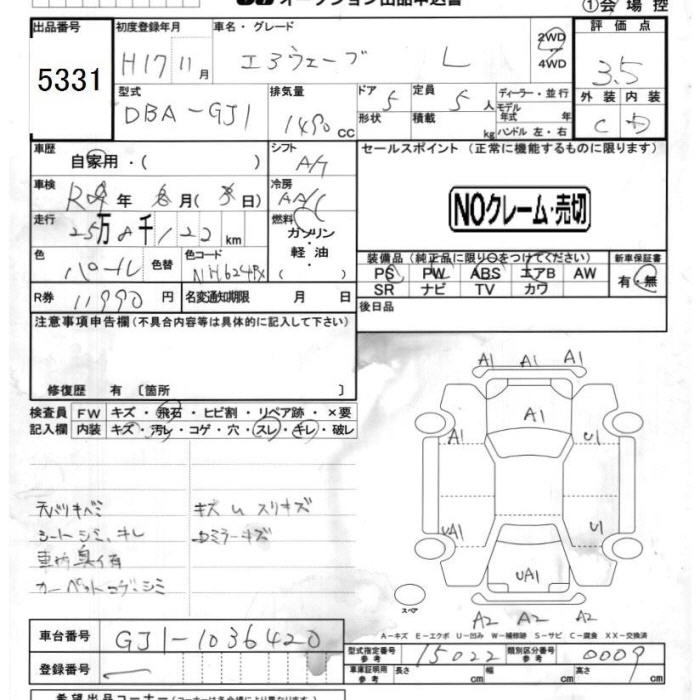 オークション出品申込書
①会場控
出品番号 5331
初度登録年月 H17 11月
車名・グレード エアウェーブ L
2WD
4WD
評価点 3.5
型式 DBA-GJ1
排気量 1490 cc
ドア 5
形状
定員 5人
積載 kg
ディーラー・並行
モデル年式 年式
ハンドル 左・右
外装 内装
C D
車歴 自家用・( )
シフト A/T
セールスポイント(正常に機能するものに限ります)
車検 年 月( 日)
冷房 AAC
NOクレーム・売切
走行 25万8千122km
燃料 ガソリン・軽油・( )
色 パール 色替
色コード NH624PX
装備品(純正品に限り○をつけてください)
PS PW ABS エアB AW
SR ナビ TV カワ
新車保証書 有・無
R券 11990円
名変通知期限 月 日
後日品
注意事項申告欄(不具合内容等は具体的に記入して下さい)
修復歴 有〔箇所 〕
検査員記入欄
FW キズ・飛石・ヒビ割・リペア跡・×要
内装 キズ・汚レ・コゲ・穴・スレ・キレ・破レ
シートシミ、キレ
車内臭イ有
カーペットコゲ・シミ
キズUスリキズ
ミラーキズ
A1 A1 A1
A1
A1 U1
UA1 U1
UA1
A2 A2 A2
スペア
A－キズ E－エクボ U－凹み W－補修跡 S－サビ C－腐食 XX－交換済
車台番号 GJ1-1036420
登録番号
型式指定番号 参考 15022
類別区分番号 参考 0009
車庫証明用 参考 長さ cm 幅 cm 高さ cm
希望出品コーナー